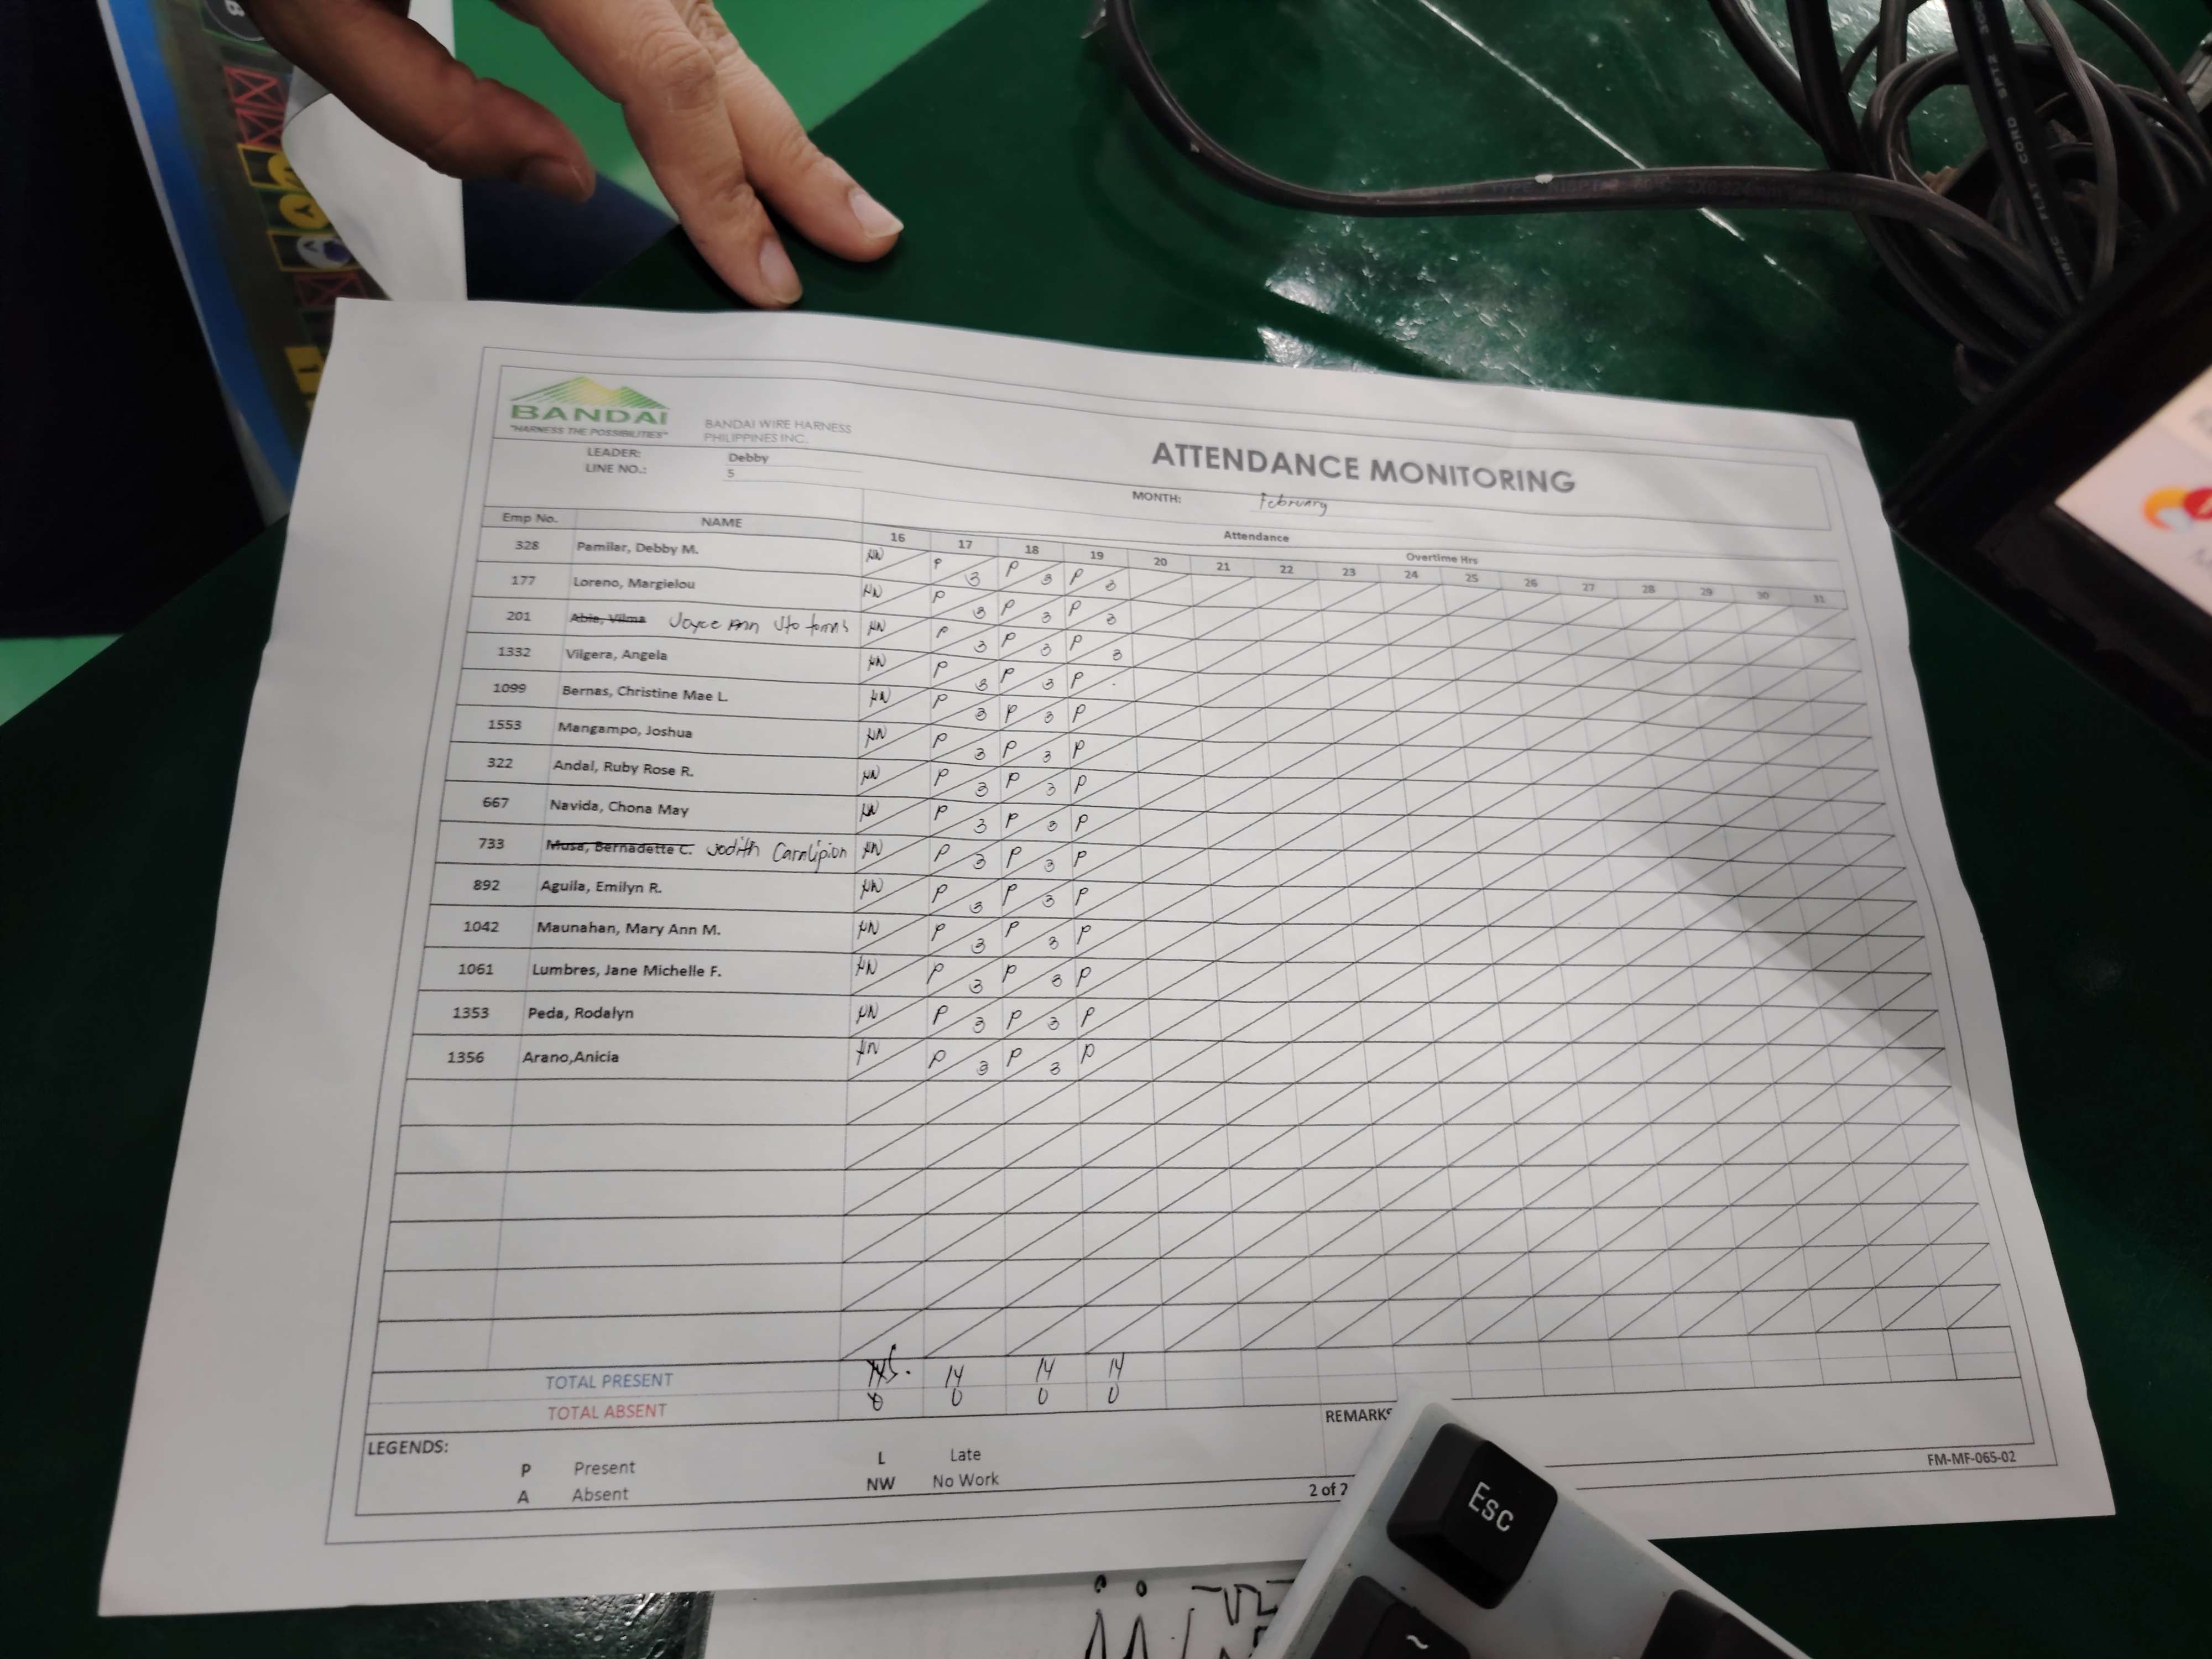 BANDAI
"HARNESS THE POSSIBILITIES"
BANDAI WIRE HARNESS
PHILIPPINES INC.
ATTENDANCE MONITORING
LEADER: Debby
LINE NO.: 5
MONTH: February
Emp No. NAME Attendance Overtime Hrs
16 17 18 19 20 21 22 23 24 25 26 27 28 29 30 31
328 Pamilar, Debby M. NW P 3 P 3 P 3
177 Loreno, Margielou NW P 3 P 3 P 3
201 Abie, Vilma Joyce Ann Sto NW P 3 P 3 P 3
1332 Vilgera, Angela NW P 3 P 3 P
1099 Bernas, Christine Mae L. NW P 3 P 3 P
1553 Mangampo, Joshua NW P 3 P 3 P
322 Andal, Ruby Rose R. NW P 3 P 3 P
667 Navida, Chona May NW P 3 P 3 P
733 Musa, Bernadette C. Jodith Caralipion NW P 3 P 3 P
892 Aguila, Emilyn R. NW P 3 P 3 P
1042 Maunahan, Mary Ann M. NW P 3 P 3 P
1061 Lumbres, Jane Michelle F. NW P 3 P 3 P
1353 Peda, Rodalyn NW P 3 P 3 P
1356 Arano,Anicia NW P 3 P 3 P
TOTAL PRESENT 14 14 14
TOTAL ABSENT 0 0 0 0
REMARKS
LEGENDS:
P Present L Late
A Absent NW No Work
2 of 2
FM-MF-065-02
Esc
~